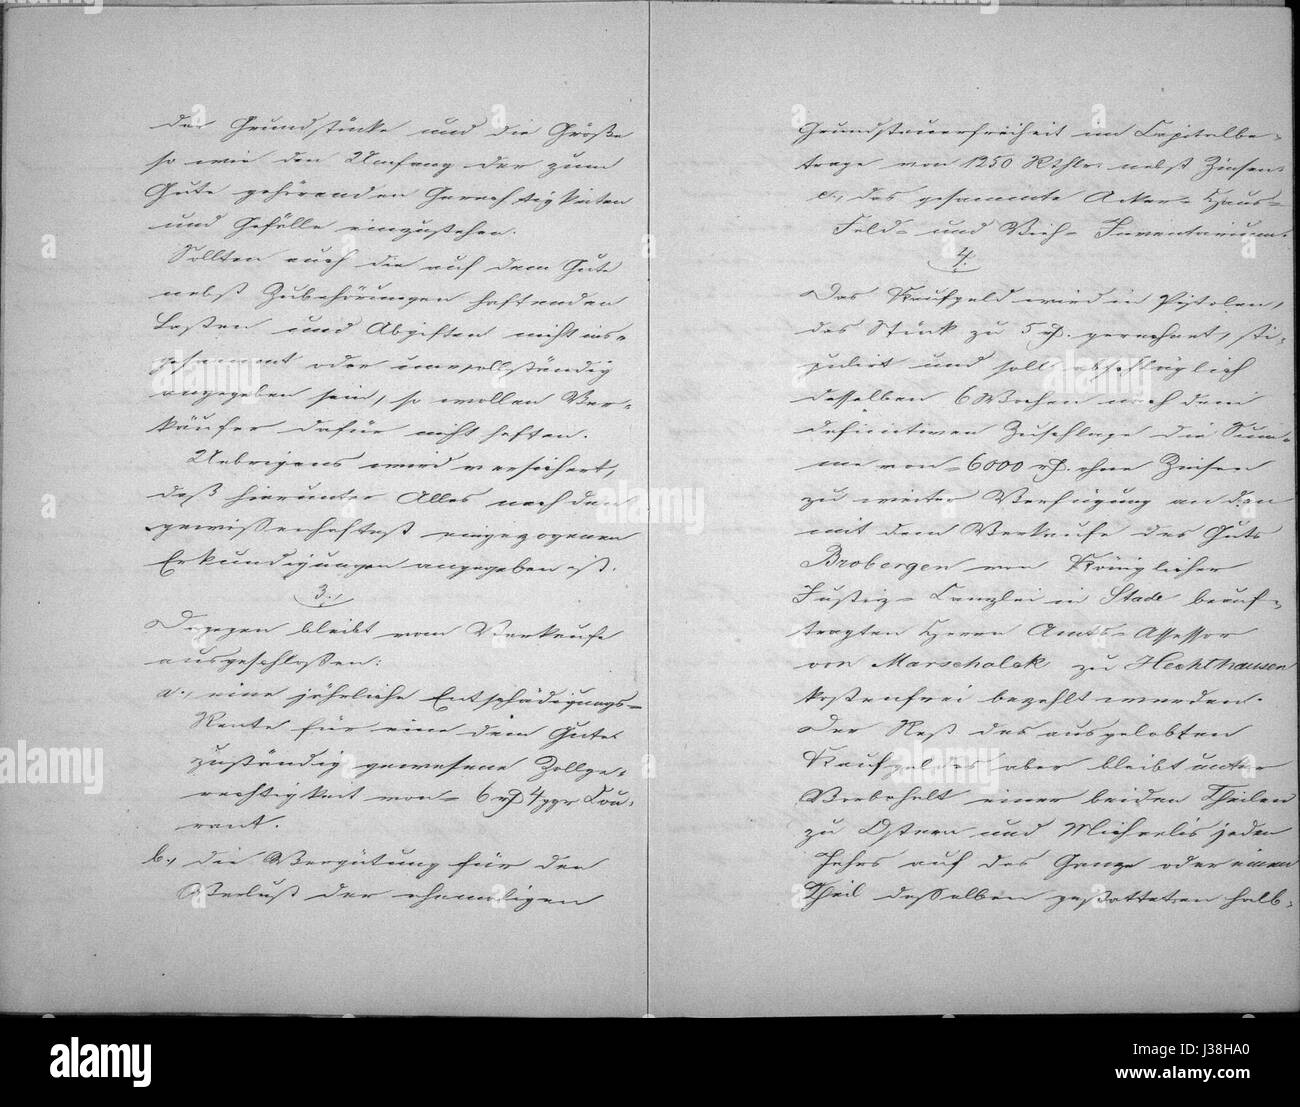 der Grundstücke und die Größe
so wie den Umfang der zum
Gute gehörenden Gerechtigkeiten
und Gefälle einzustehen.
Sollten auch die auf dem Gute
nebst Zubehörungen haftenden
Lasten und Abgiften nicht ins-
gesammt oder unvollständig
angegeben sein, so wollen Ver-
käufer dafür nicht haften.
Uebrigens wird versichert,
daß hierunter Alles nach den
gewissenhaftest eingezogenen
Erkundigungen angegeben ist.
3.
Dagegen bleibt vom Verkaufe
ausgeschloßen:
a., eine jährliche Entschädigungs-
Rente für eine dem Gute
zuständig gewesene Zollge-
rechtigkeit von 6 rß 4 ggr Cou-
rant.
b., die Vergütung für den
Verlust der ehemaligen
Grundsteuerfreiheit im Capitalbe-
trage von 1250 Rthlr. nebst Zinsen.
c., das gesammte Acker- Haus-
Feld- und Vieh- Inventarium.
4.
Das Kaufgeld wird in Pistolen,
das Stück zu 5 rß. gerechnet, sti-
pulirt und soll abschläglich
desselben 6 Wochen nach dem
definitiven Zuschlage die Sum-
me von 6000 rß. ohne Zinsen
zu weiter Verfügung an den
mit dem Verkaufe des Guts
Brobergen von Königlicher
Justiz- Canzlei in Stade beauf-
tragten Herrn Amts-Assessor
von Marschalck zu Hechthausen
kostenfrei bezahlt werden.
Der Rest des ausgelobten
Kaufgeldes aber bleibt unter
Vorbehalt einer beiden Theilen
zu Ostern und Michaelis jeden
Jahrs auf das Ganze oder einen
Theil desselben gestatteten halb-
alamy
alamy
J38HA0
www.alamy.com